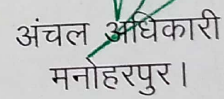 अंचल अधिकारी
मनोहरपुर।